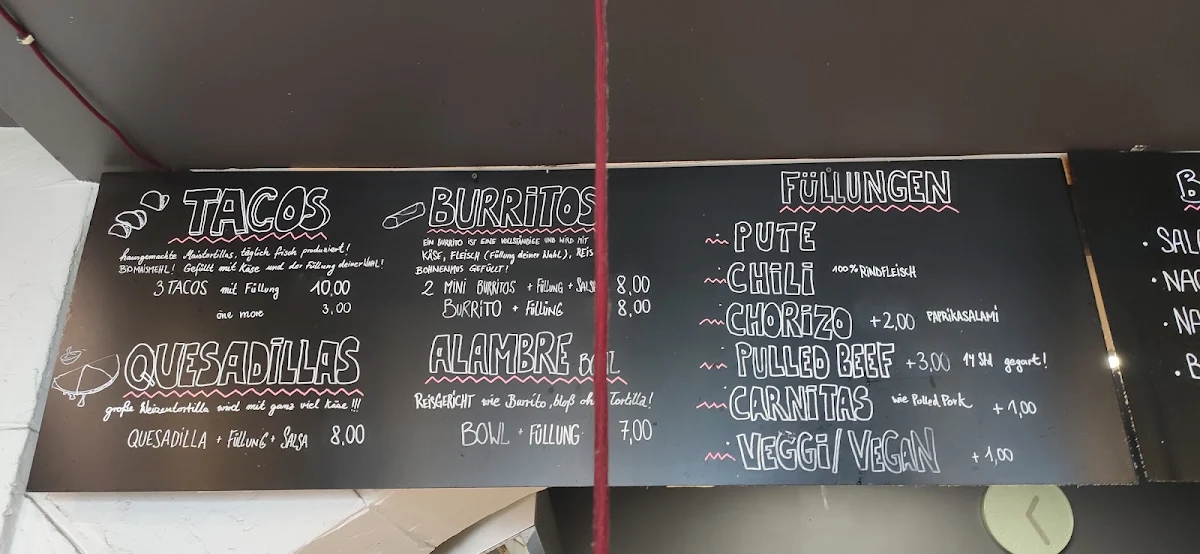 TACOS
hausgemachte Maistortillas, täglich frisch produziert!
BIOMAISMEHL! Gefüllt mit Käse und der Füllung deiner WAHL!
3 TACOS mit Füllung 10,00
one more 3,00
QUESADILLAS
große Weizentortilla wird mit ganz viel Käse!!!
QUESADILLA + FÜLLUNG + SALSA 8,00
BURRITOS
EIN BURRITO IST EINE VOLLSTÄNDIGE UND WIRD MIT
KÄSE, FLEISCH (Füllung deiner Wahl), REIS
BOHNENMUS GEFÜLLT!
2 MINI BURRITOS + FÜLLUNG + SALSA 8,00
BURRITO + FÜLLUNG 8,00
ALAMBRE BOWL
REISGERICHT wie Burrito, bloß ohne Tortilla!
BOWL + FÜLLUNG 7,00
FÜLLUNGEN
PUTE
CHILI 100% RINDFLEISCH
CHORIZO +2,00 PAPRIKASALAMI
PULLED BEEF +3,00 14 Std gegart!
CARNITAS wie Pulled Pork +1,00
VEGGI/VEGAN +1,00